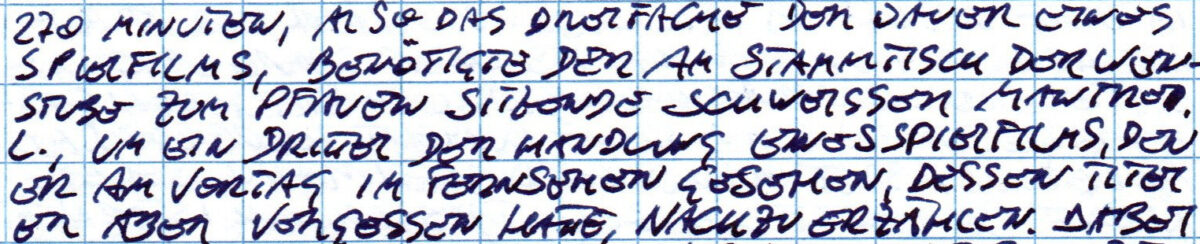 270 MINUTEN, ALSO DAS DREIFACHE DER DAUER EINES
SPIELFILMS, BENÖTIGTE DER AM STAMMTISCH DER WEIN-
STUBE ZUM PFAUEN SITZENDE SCHWEISSER MANFRED
L., UM EIN DRITTEL DER HANDLUNG EINES SPIELFILMS, DEN
ER AM VORTAG IM FERNSEHEN GESEHEN, DESSEN TITEL
ER ABER VERGESSEN HATTE, NACHZUERZÄHLEN. DABEI